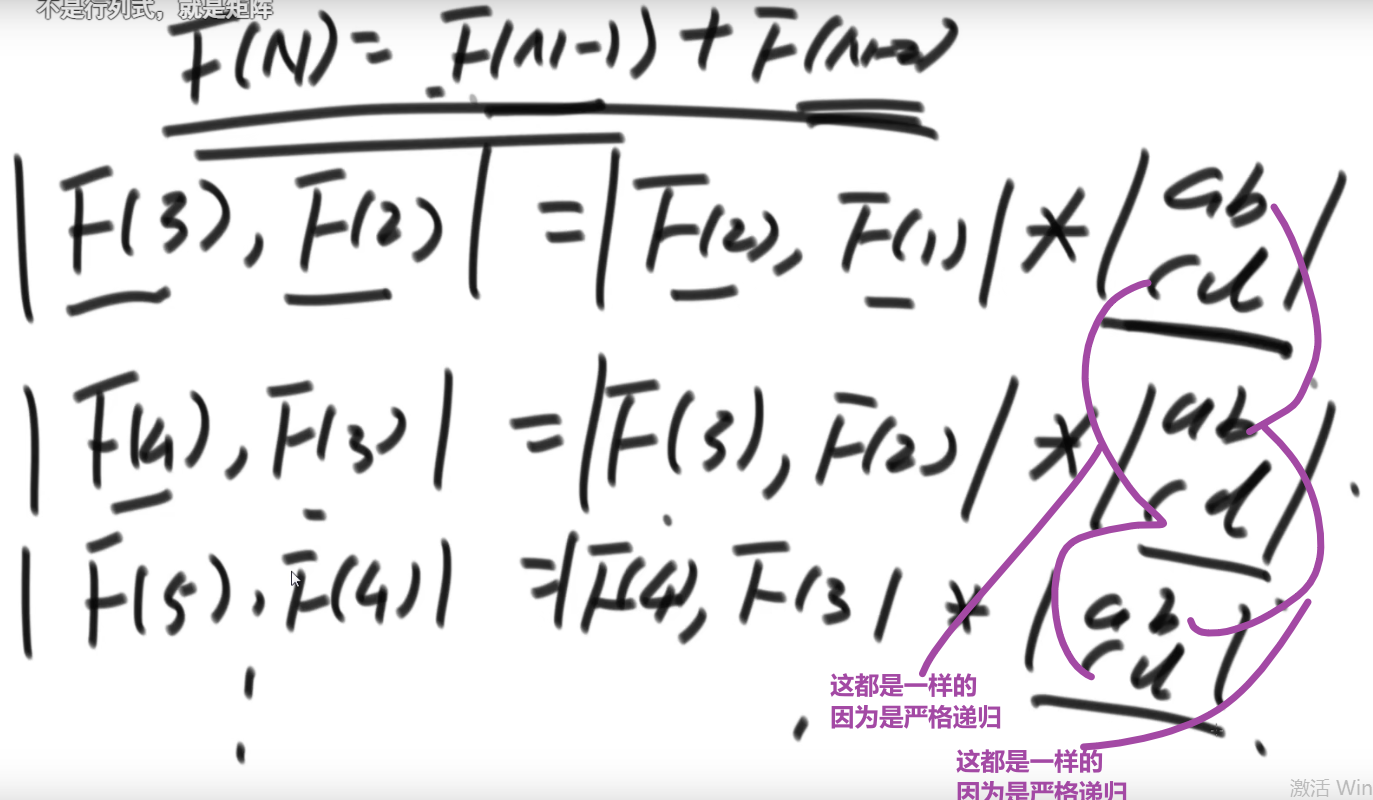 不是行列式，就是矩阵
F(N) = F(N-1) + F(N-2)
| F(3), F(2) | = | F(2), F(1) | * | ab
cd |
| F(4), F(3) | = | F(3), F(2) | * | ab
cd |
| F(5), F(4) | = | F(4), F(3 | * | ab
cd |
这都是一样的
因为是严格递归
这都是一样的
因为是严格递归
激活 Win